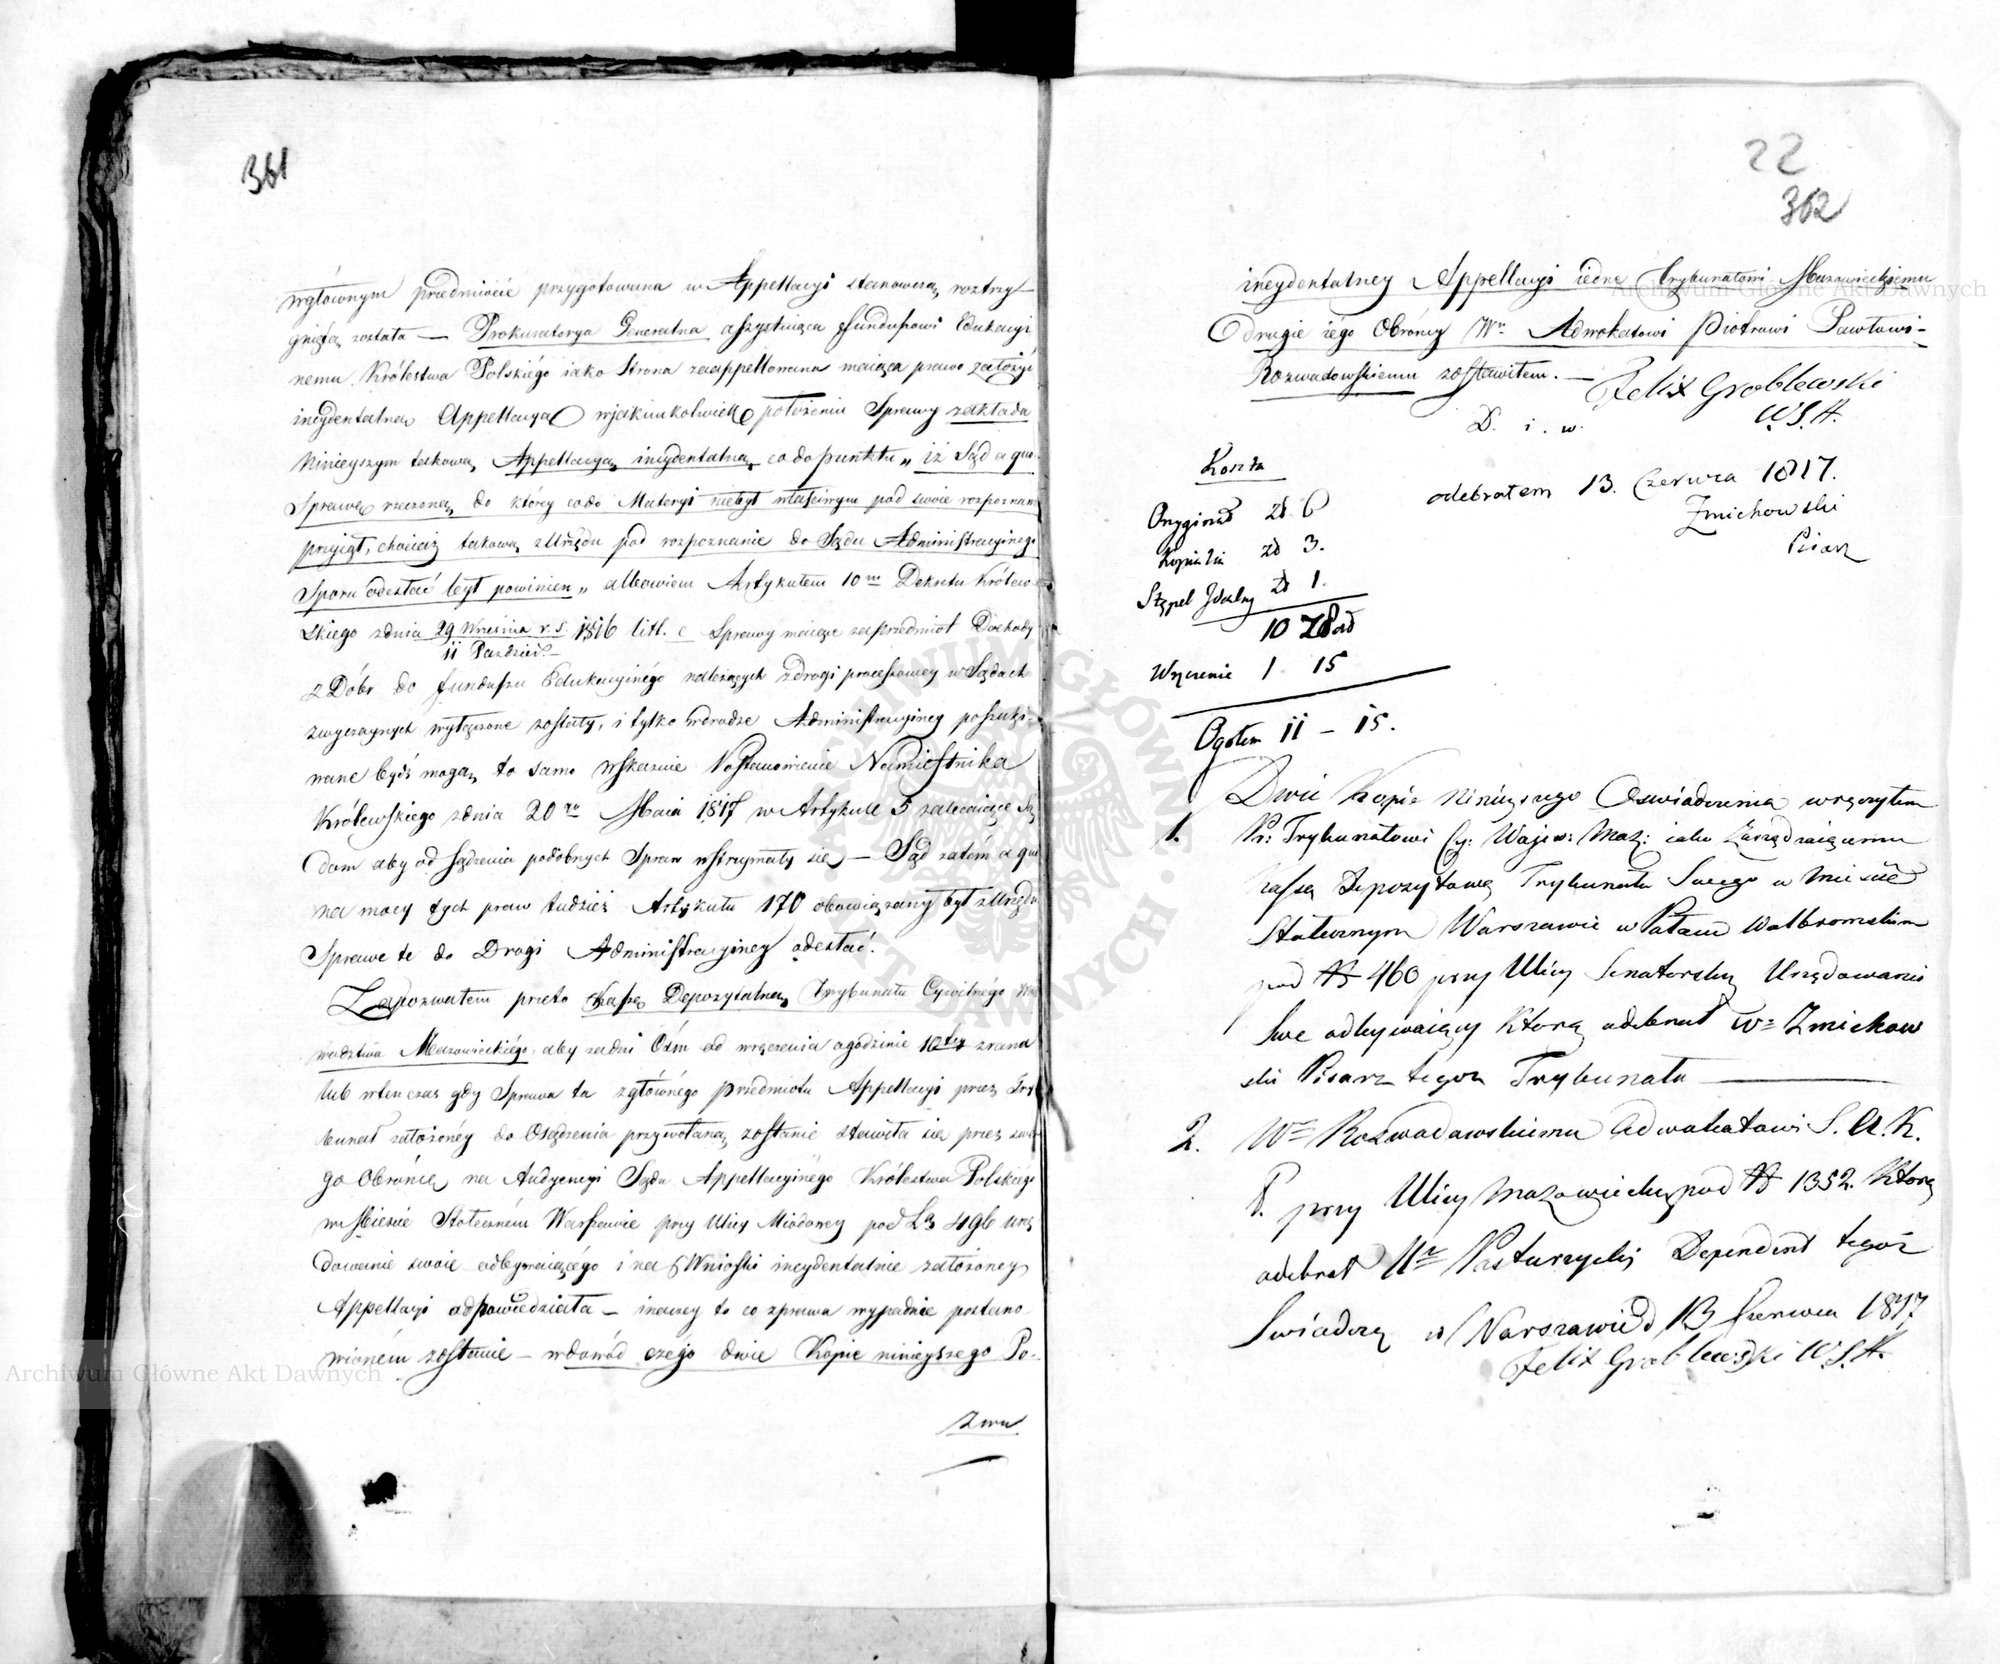 361
wgłównym przedmiocie przygotowana w Appellacyi stanowczą roztrzy-
gnięta została — Prokuratorya Generalna assystuiąca funduszowi Edukacyi
nemu Królestwa Polskiégo iako Strona zaappellowana maiąca prawo założyć
incydentalną Appellacyą wjakimkolwiek położeniu Sprawy zakłada
Ninieyszym takową Appellacyą incydentalną co do punktu „ iż Sąd a quo
Sprawę rzeczoną do którey co do Materyi niebył właściwym pod swoie rozpoznanie
przyiął, chociaż takową z Urzędu pod rozpoznanie do Sądu Administracyinego
Sporu odesłać był powinien „ albowiem Artykułem 10m Dekretu Królew-
skiego zdnia 29 Września r. s. 1816 litt. c Sprawy maiące za przedmiot Dochody
11 Paździer.
z Dóbr do funduszu Edukacyinégo należących z drogi processowey w Sądach
zwyczaynych wyłączone zostały, i tylko w drodze Administracyiney poszuki-
wane bydź mogą, to samo wskazuie Postanowienie Namiestnika
Królewskiego zdnia 20go Maia 1817 w Artykule 5 zalecaiące Są
dom aby od sądzenia podobnych Spraw wstrzymały się — Sąd zatém a quo
na mocy tych praw tudzież Artykułu 170 obowiązany był z Urzędu
Sprawę tę do Drogi Administracyiney odesłać.
Zapozwałem przeto Kassę Depozytalną Trybunału Cywilnégo Woie
wództwa Mazowieckiégo, aby za dni Ośm od wręczenia o godzinie 10tey zrana
lub wtenczas gdy Sprawa ta z głównégo przedmiotu Appellacyi przez Try
bunał założonéy do Osądzenia przywołaną zostanie stawiła się przez swe
go Obrońcę na Audyencyi Sądu Appellacyinégo Królestwa Polskiégo
w Mieście Stołeczném Warszawie przy Ulicy Miodowey pod Lą 496 urzę
dowanie swoie odbywaiącégo i na Wnioski incydentalnie założoney
Appellacyi odpowiedziała — inaczey to co z prawa wypadnie postano
wioném zostanie — wdowód czégo dwie Kopie ninieyszego Po-
zwu
22
362
incydentalney Appellacyi iednę Trybunałowi Mazowieckiemu
drugie iégo Obrońcy Wu Adwokatowi Piotrowi Pawłowi-
Rozwadowskiemu zostawiłem. —
Felix Groblewski
W. S. A.
D. i. w.
odebrałem 13. Czerwca 1817.
Zmichowski
Pisarz
Koszta
Oryginał zł 6
Kopiia zł 3.
Stępel zł 1.
10
Wręczenie 1 15
Ogółem 11 – 15.
Dwie Kopie Ninieyszego Oswiadczenia wręczyłem
1. Pr: Trybunałowi Cy: Wojew: Maz: iako Zarządzaiącemu
Kassą Depozytową Trybunału Swego w Mieście
Stołecznym Warszawie w Pałacu
pod N 460 przy Ulicy Senatorskiey Urzędowanie
Swe odbywaiący Którą odebrał W Zmichow
ski Pisarz tegoż Trybunału —
2. W Rozwadowskiemu Adwokatowi S. A. K.
P. przy Ulicy Mazowieckiey pod N 1352. Którą
odebrał Dependent tegoż
Świadczę w Warszawie d 13 Czerwca 1817
Felix Groblewski W. S. A.
Archiwum Główne Akt Dawnych
Archiwum Główne Akt Dawnych
ARCHIWUM GŁÓWNE AKT DAWNYCH